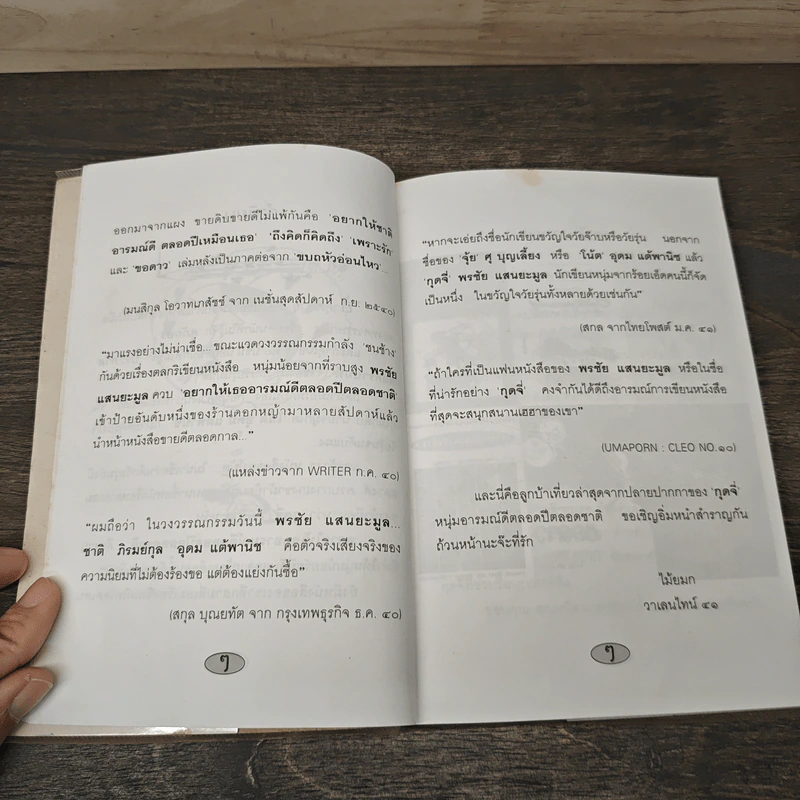 ออกมาจากแผง ขายดิบขายดีไม่แพ้กันคือ 'อยากให้ชาติ
อารมณ์ดี ตลอดปีเหมือนเธอ' 'ถึงคิดก็คิดถึง' 'เพราะรัก'
และ 'ขอดาว' เล่มหลังเป็นภาคต่อจาก 'ขบถหัวอ่อนไหว'...
(มนสิกุล โอวาทเภสัชช์ จาก เนชั่นสุดสัปดาห์ ก.ย. ๒๕๔๐)
"มาแรงอย่างไม่น่าเชื่อ... ขณะแวดวงวรรณกรรมกำลัง 'ชนช้าง'
กันด้วยเรื่องตลกริเขียนหนังสือ หนุ่มน้อยจากที่ราบสูง พรชัย
แสนยะมูล ควบ 'อยากให้เธออารมณ์ดีตลอดปีตลอดชาติ'
เข้าป้ายอันดับหนึ่งของร้านดอกหญ้ามาหลายสัปดาห์แล้ว
นำหน้าหนังสือขายดีตลอดกาล..."
(แหล่งข่าวจาก WRITER ก.ค. ๔๐)
"ผมถือว่า ในวงวรรณกรรมวันนี้ พรชัย แสนยะมูล...
ชาติ ภิรมย์กุล อุดม แต้พานิช คือตัวจริงเสียงจริงของ
ความนิยมที่ไม่ต้องร้องขอ แต่ต้องแย่งกันซื้อ"
(สกุล บุณยทัต จาก กรุงเทพธุรกิจ ธ.ค. ๔๐)
ๆ
"หากจะเอ่ยถึงชื่อนักเขียนขวัญใจวัยจ๊าบหรือวัยรุ่น นอกจาก
ชื่อของ 'จุ้ย' ศุ บุญเลี้ยง หรือ 'โน้ต' อุดม แต้พานิช แล้ว
'กุดจี่' พรชัย แสนยะมูล นักเขียนหนุ่มจากร้อยเอ็ดคนนี้ก็จัด
เป็นหนึ่ง ในขวัญใจวัยรุ่นทั้งหลายด้วยเช่นกัน"
(สกล จากไทยโพสต์ ม.ค. ๔๑)
"ถ้าใครที่เป็นแฟนหนังสือของ พรชัย แสนยะมูล หรือในชื่อ
ที่น่ารักอย่าง 'กุดจี่' คงจำกันได้ดีถึงอารมณ์การเขียนหนังสือ
ที่สุดจะสนุกสนานเฮฮาของเขา"
(UMAPORN : CLEO NO.๑๐)
และนี่คือลูกบ้าเที่ยวล่าสุดจากปลายปากกาของ 'กุดจี่'
หนุ่มอารมณ์ดีตลอดปีตลอดชาติ ขอเชิญอิ่มหน้าสำราญกัน
ถ้วนหน้านะจ๊ะที่รัก
ไม้ยมก
วาเลนไทน์ ๔๑
ๆ